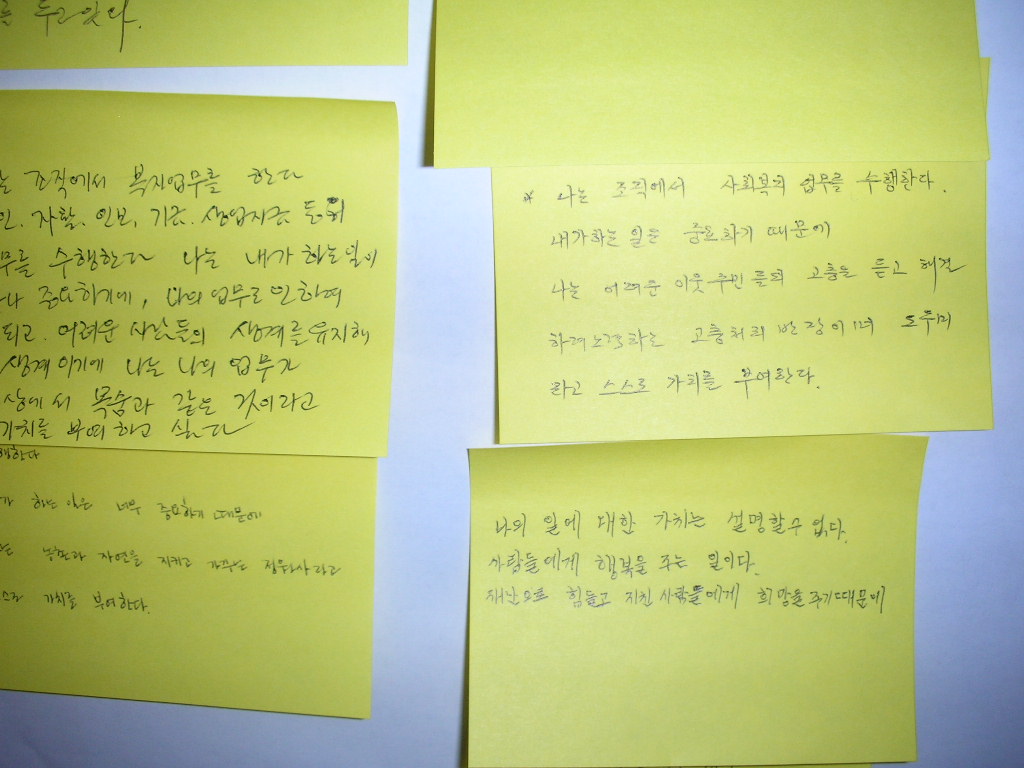 를 두고 있다.
조직에서 복지업무를 한다
자활. 인보, 기금. 생업자금 등의
무를 수행한다 나는 내가 하는일이
중요하기에, 나의 업무로 인하여
되고. 어려운 사람들의 생계를 유지해
생계이기에 나는 나의 업무가
상에서 목숨과 같은 것이라고
가치를 부여하고 싶다
행한다
가 하는 일은 너무 중요하기 때문에
농민과 자연을 지키고 가꾸는 정원사라고
스로 가치를 부여한다.
* 나는 조직에서 사회복지 업무를 수행한다.
내가하는 일은 중요하기 때문에
나는 어려운 이웃주민들의 고충을 듣고 해결
하려 노력하는 고충처리반장이며 도우미
라고 스스로 가치를 부여한다.
나의 일에 대한 가치는 설명할수 없다.
사람들에게 행복을 주는 일이다.
재난으로 힘들고 지친 사람들에게 희망을 주기때문에